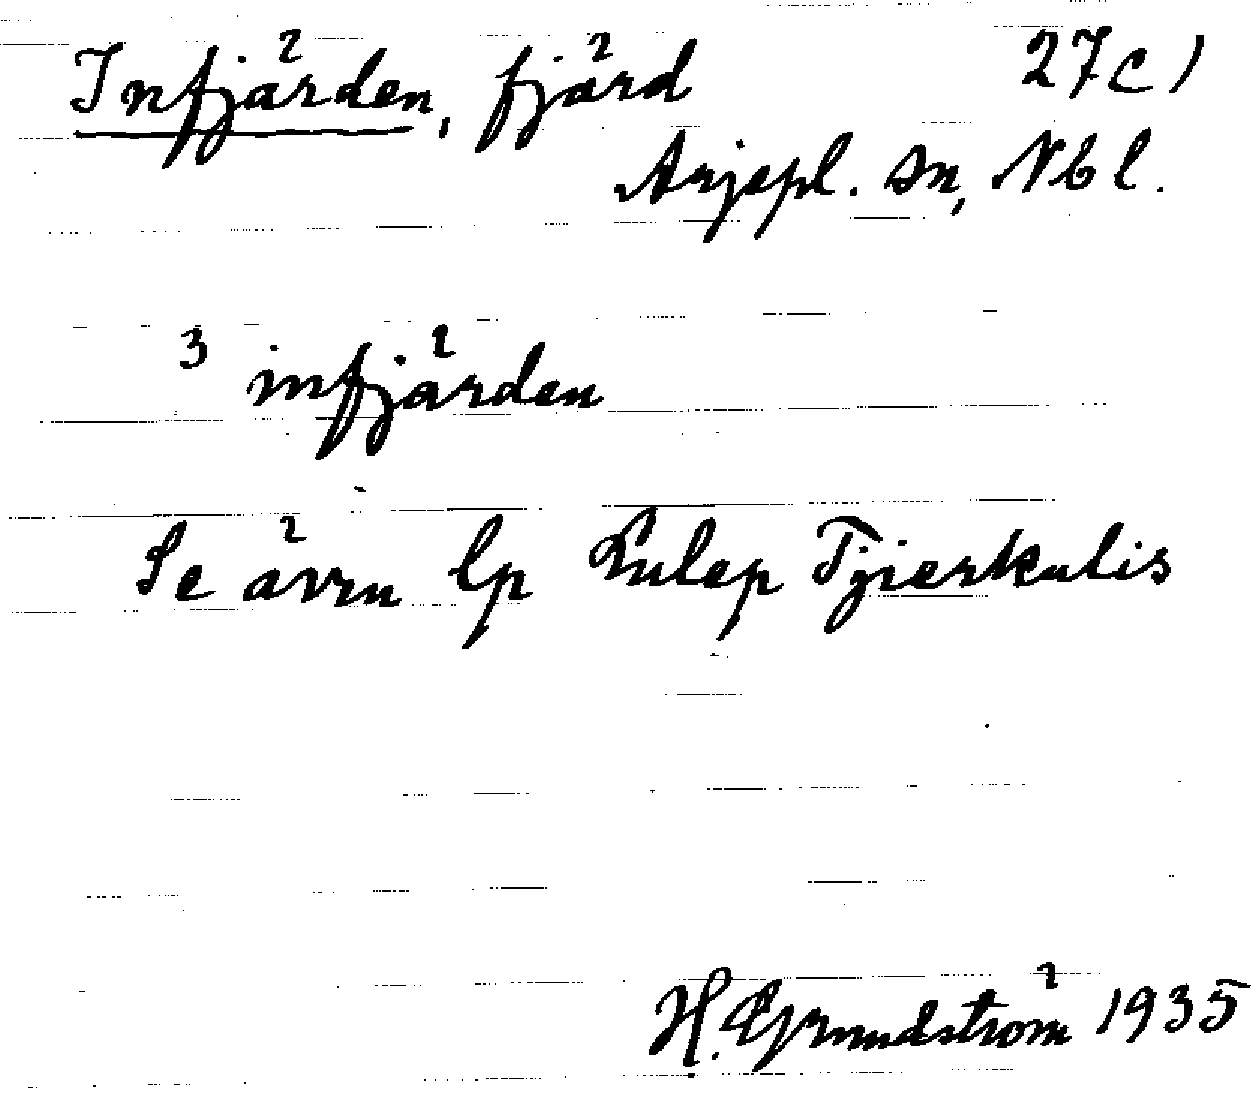 Infjärden, fjärd 27c1
Arjepl. sn, Nbl.
3 infjärden
Se även lp Lulep Tjierkulis
H. Grundström 1935